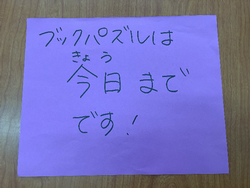 ブックパズルは
きょう
今日まで
です!